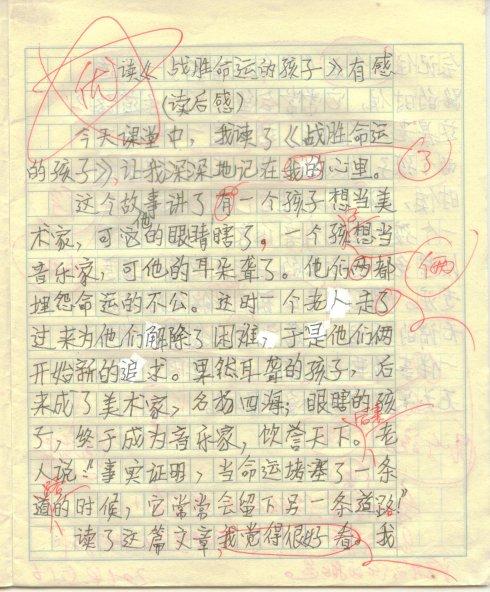 优
读《战胜命运的孩子》有感
(读后感)
今天课堂中，我读了《战胜命运
的孩子》，让我深深地记在我的心里。
了
这个故事讲了有一个孩子想当美
术家，可他的眼睛瞎了，一个孩想当
音乐家，可他的耳朵聋了。他们两都
俩
埋怨命运的不公。这时一个老人走了
过来为他们解除了困难，于是他们俩
开始新的追求。果然耳聋的孩子，后
来成了美术家，名扬四海；眼瞎的孩
子，终于成为音乐家，饮誉天下。老
人说："事实证明，当命运堵塞了一条
道的时候，它常常会留下另一条道路！"
读了这篇文章，我觉得很好看。我